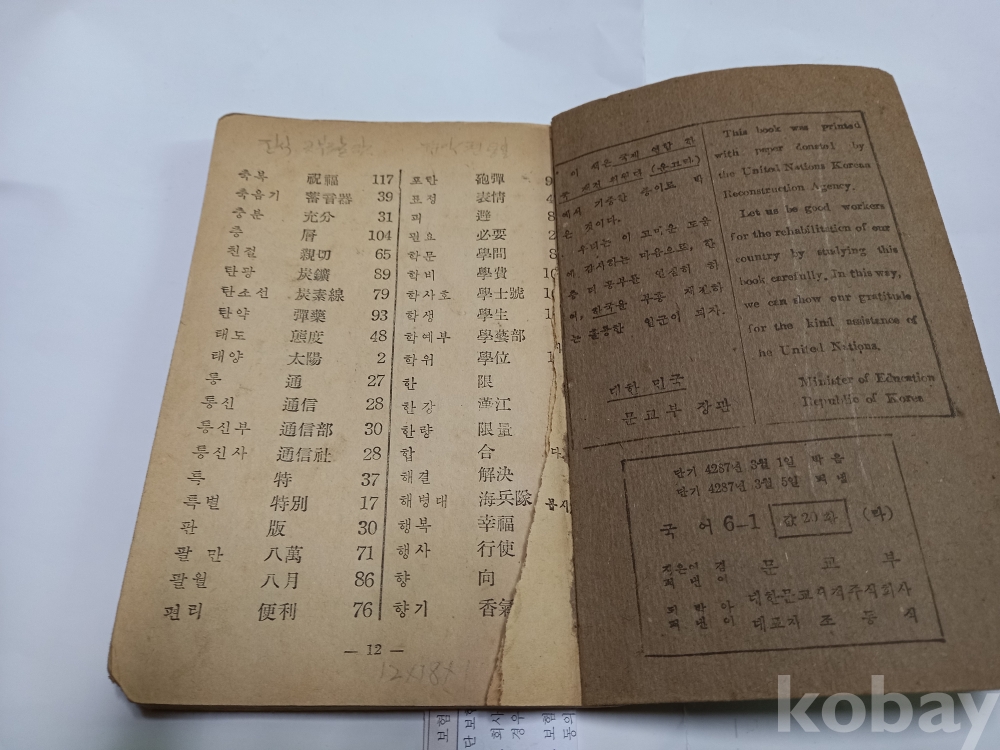 축복 祝福 117
축음기 蓄音器 39
충분 充分 31
층 層 104
친절 親切 65
탄광 炭鑛 89
탄소선 炭素線 79
탄약 彈藥 93
태도 態度 48
태양 太陽 2
통 通 27
통신 通信 28
통신부 通信部 30
통신사 通信社 28
특 特 37
특별 特別 17
판 版 30
팔만 八萬 71
팔월 八月 86
편리 便利 76
포탄 砲彈 9
표정 表情 4
피 避 8
필요 必要 2
학문 學問 8
학비 學費 10
학사호 學士號 1
학생 學生 1
학예부 學藝部
학위 學位 1
한 限
한강 漢江
한량 限量
합 合
해결 解決
해병대 海兵隊
행복 幸福
행사 行使
향 向
향기 香氣
— 12 —
12×18×1
이 책은 국제 연합 한
국 재건 위원단 (운끄라)
에서 기증한 종이로 박
은 것이다.
우리는 이 고마운 도움
에 감사하는 마음으로, 한
층 더 공부를 열심히 하
여, 한국을 부흥 재건하
는 훌륭한 일군이 되자.
대한 민국
문교부 장관
This book was printed
with paper donated by
the United Nations Korean
Reconstruction Agency.
Let us be good workers
for the rehabilitation of our
country by studying this
book carefully. In this way,
we can show our gratitude
for the kind assistance of
he United Nations.
Minister of Education
Republic of Korea
단기 4287년 3월 1일 박음
단기 4287년 3월 5일 펴냄
국어 6-1 값 20환 (라)
지은이 겸
펴낸이 문교부
박은이
펴낸이 대한문교서적주식회사
대표자 조동식
kobay
보험
단보험
회사
경우
보험
동의